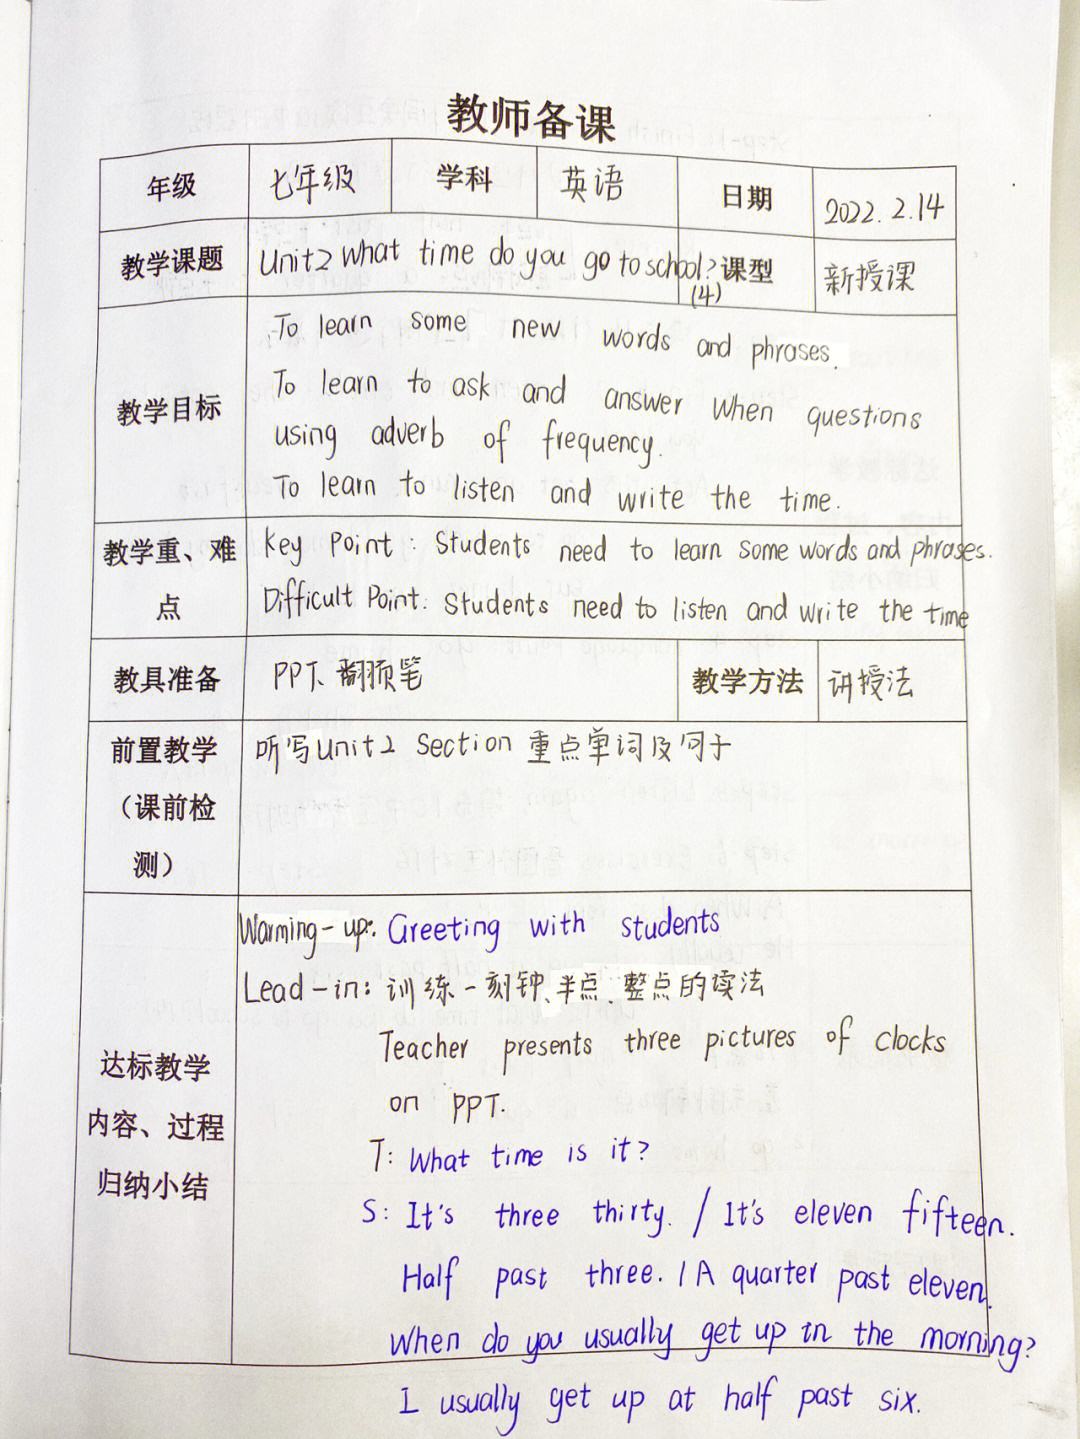 教师备课
年级 七年级 学科 英语 日期 2022.2.14
教学课题 Unit2 What time do you go to school? 课型 新授课
(4)
教学目标
To learn some new words and phrases.
To learn to ask and answer when questions
using adverb of frequency.
To learn to listen and write the time.
教学重、难点
Key Point: Students need to learn some words and phrases.
Difficult Point: Students need to listen and write the time
教具准备 PPT、翻页笔 教学方法 讲授法
前置教学
（课前检
测）
听写Unit2 Section 重点单词及句子
达标教学
内容、过程
归纳小结
Warming-up: Greeting with students
Lead-in: 训练一刻钟、半点、整点的读法
Teacher presents three pictures of clocks
on PPT.
T: What time is it?
S: It's three thirty. / It's eleven fifteen.
Half past three. / A quarter past eleven.
When do you usually get up in the morning?
I usually get up at half past six.